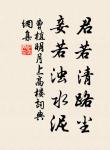 君若清路尘
妾若浊水泥
曹植明月上高樓詞典
網集